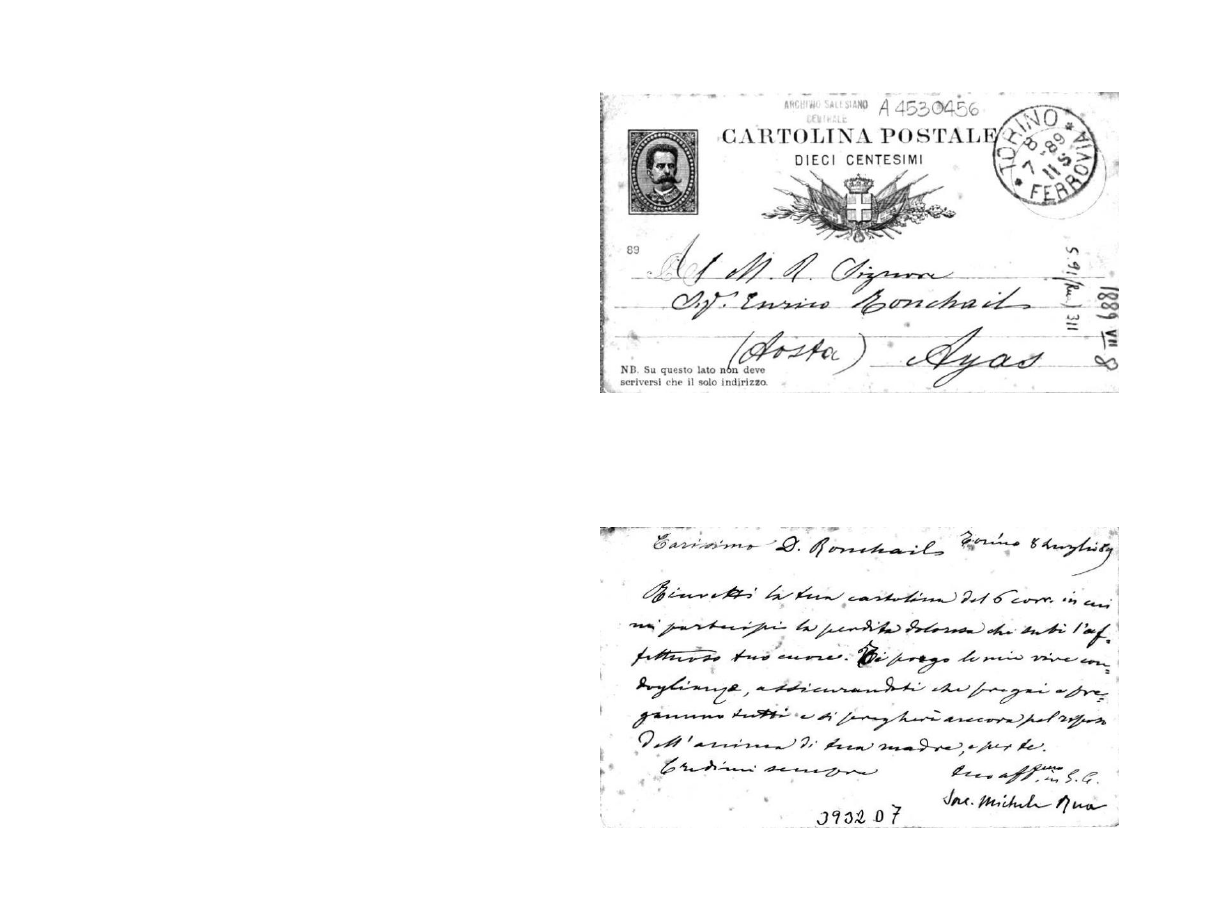 ARCHIVIO SALESIANO
CENTRALE
A 4530456
CARTOLINA POSTALE
DIECI CENTESIMI
TORINO
FERROVIA
8
7 - 89
11 S
89
Al M. R. Signore
Sig. D. Enrico Ronchail
(Aosta) Ayas
S.9.1/Rua) 311
1889 VII 8
NB. Su questo lato non deve
scriversi che il solo indirizzo.
Carissimo D. Ronchail Torino 8 Luglio 89
Ricevetti la tua cartolina del 6 corr. in cui
mi partecipi la perdita dolorosa che subì l'af-
fettuoso tuo cuore. Ti porgo le mie vive con-
doglianze, assicurandoti che pregai e pre-
gammo tutti e si pregherà ancora pel riposo
dell'anima di tua madre, e per te.
Credimi sempre
tuo aff.mo in G. C.
Sac. Michele Rua
3932 D 7